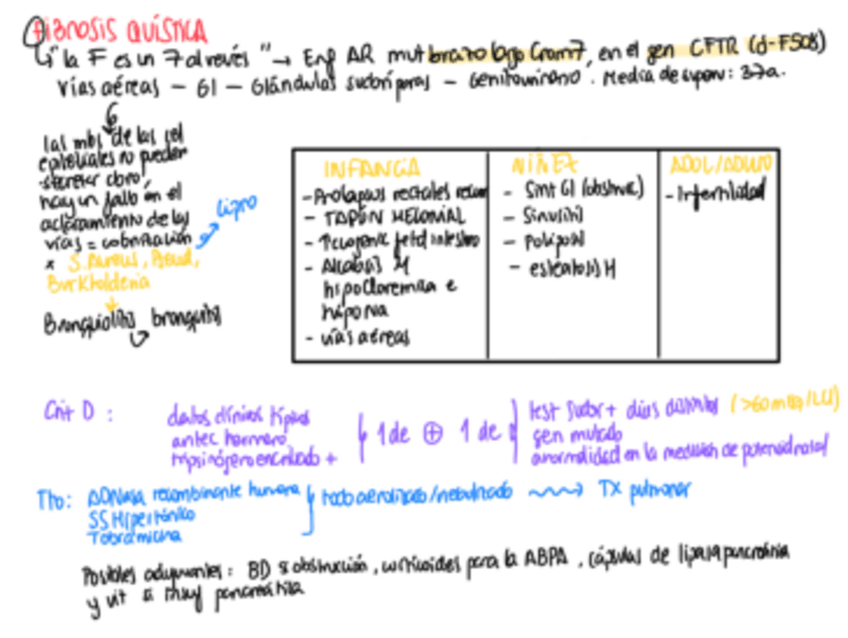 Fibrosis QUÍSTICA
"la F es un 7 al revés" → Enf AR mut brazo largo Crom7, en el gen CFTR (d-F508)
Vías aéreas - GI - Glándulas sudoríparas - Genitourinario. Media de superv: 37a.
las mbs de las cel
epiteliales no pueden
secretar cloro,
hay un fallo en el
aclaramiento de las
vías = colonización
x S. Aureus, Pseud,
Burkholderia
cipro
Bronquiolitis bronquitis
INFANCIA
- Prolapsos rectales recurr
- TAPÓN MECONIAL
- fetal intestino
- Alcalosis M
hipocloremica e
hipona
- vías aéreas
NIÑEZ
- Sint GI (obstruc)
- Sinusitis
- Poliposis
- esteatosis H
ADOL/ADULTO
- Infertilidad
Crit D:
datos clínicos típicos
antec hermano
tripsinógeno encelado +
1 de ⊕ 1 de
test sudor + días distintos (>60 meq/LCl)
gen mutado
anormalidad en la medición de potencial nasal
Tto: DDNasa recombinante humana
SS Hipertónico
Tobramicina
todo aerolizado/nebulizado → TX pulmonar
Posibles adyuvantes: BD si obstrucción, corticoides para la ABPA, cápsulas de lipasa pancreática
y vit si insuf pancreática